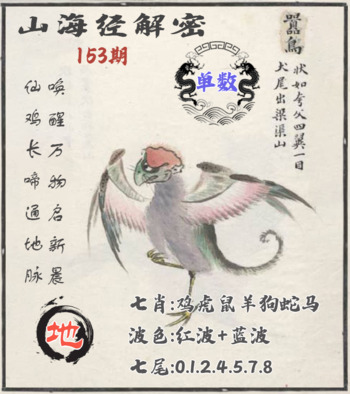 山海经解密
153期
单数
嚣鸟
状如夸父四翼一目
犬尾出梁渠山
唤醒万物启新晨
仙鸡长啼通地脉
地
七肖:鸡虎鼠羊狗蛇马
波色:红波+蓝波
七尾:0.1.2.4.5.7.8